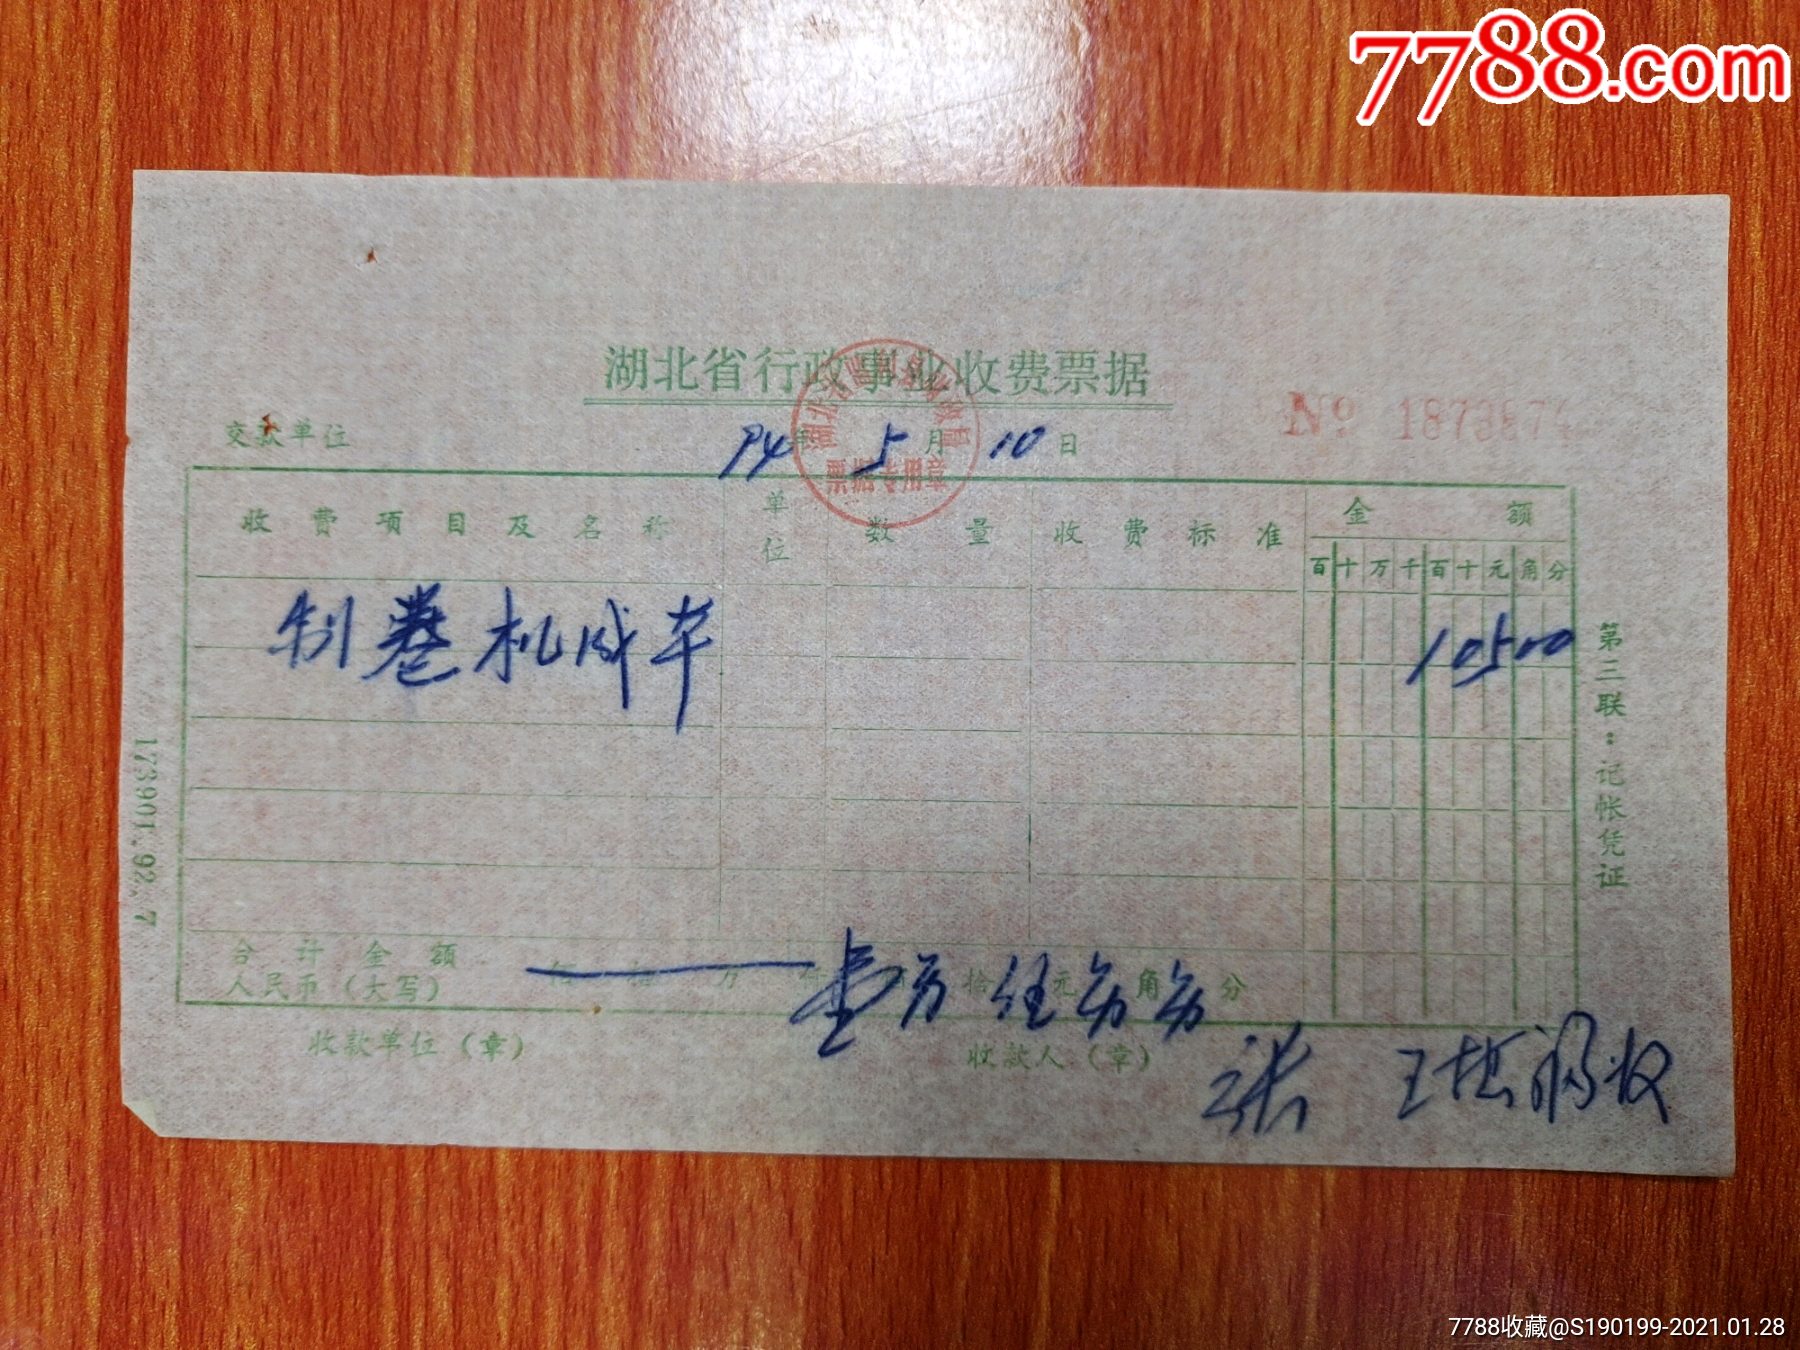 7788.com
湖北省行政事业收费票据
票据专用章
交款单位
94年 5月 10日
No 1873874
收费项目及名称 单位 数量 收费标准 金额
百十万千百十元角分
制卷机成本 10500
合计金额
人民币（大写） 万 拾 元 角 分
收款单位（章） 收款人（章）
张 王
第三联：记帐凭证
173901.92.7
7788收藏@S190199-2021.01.28